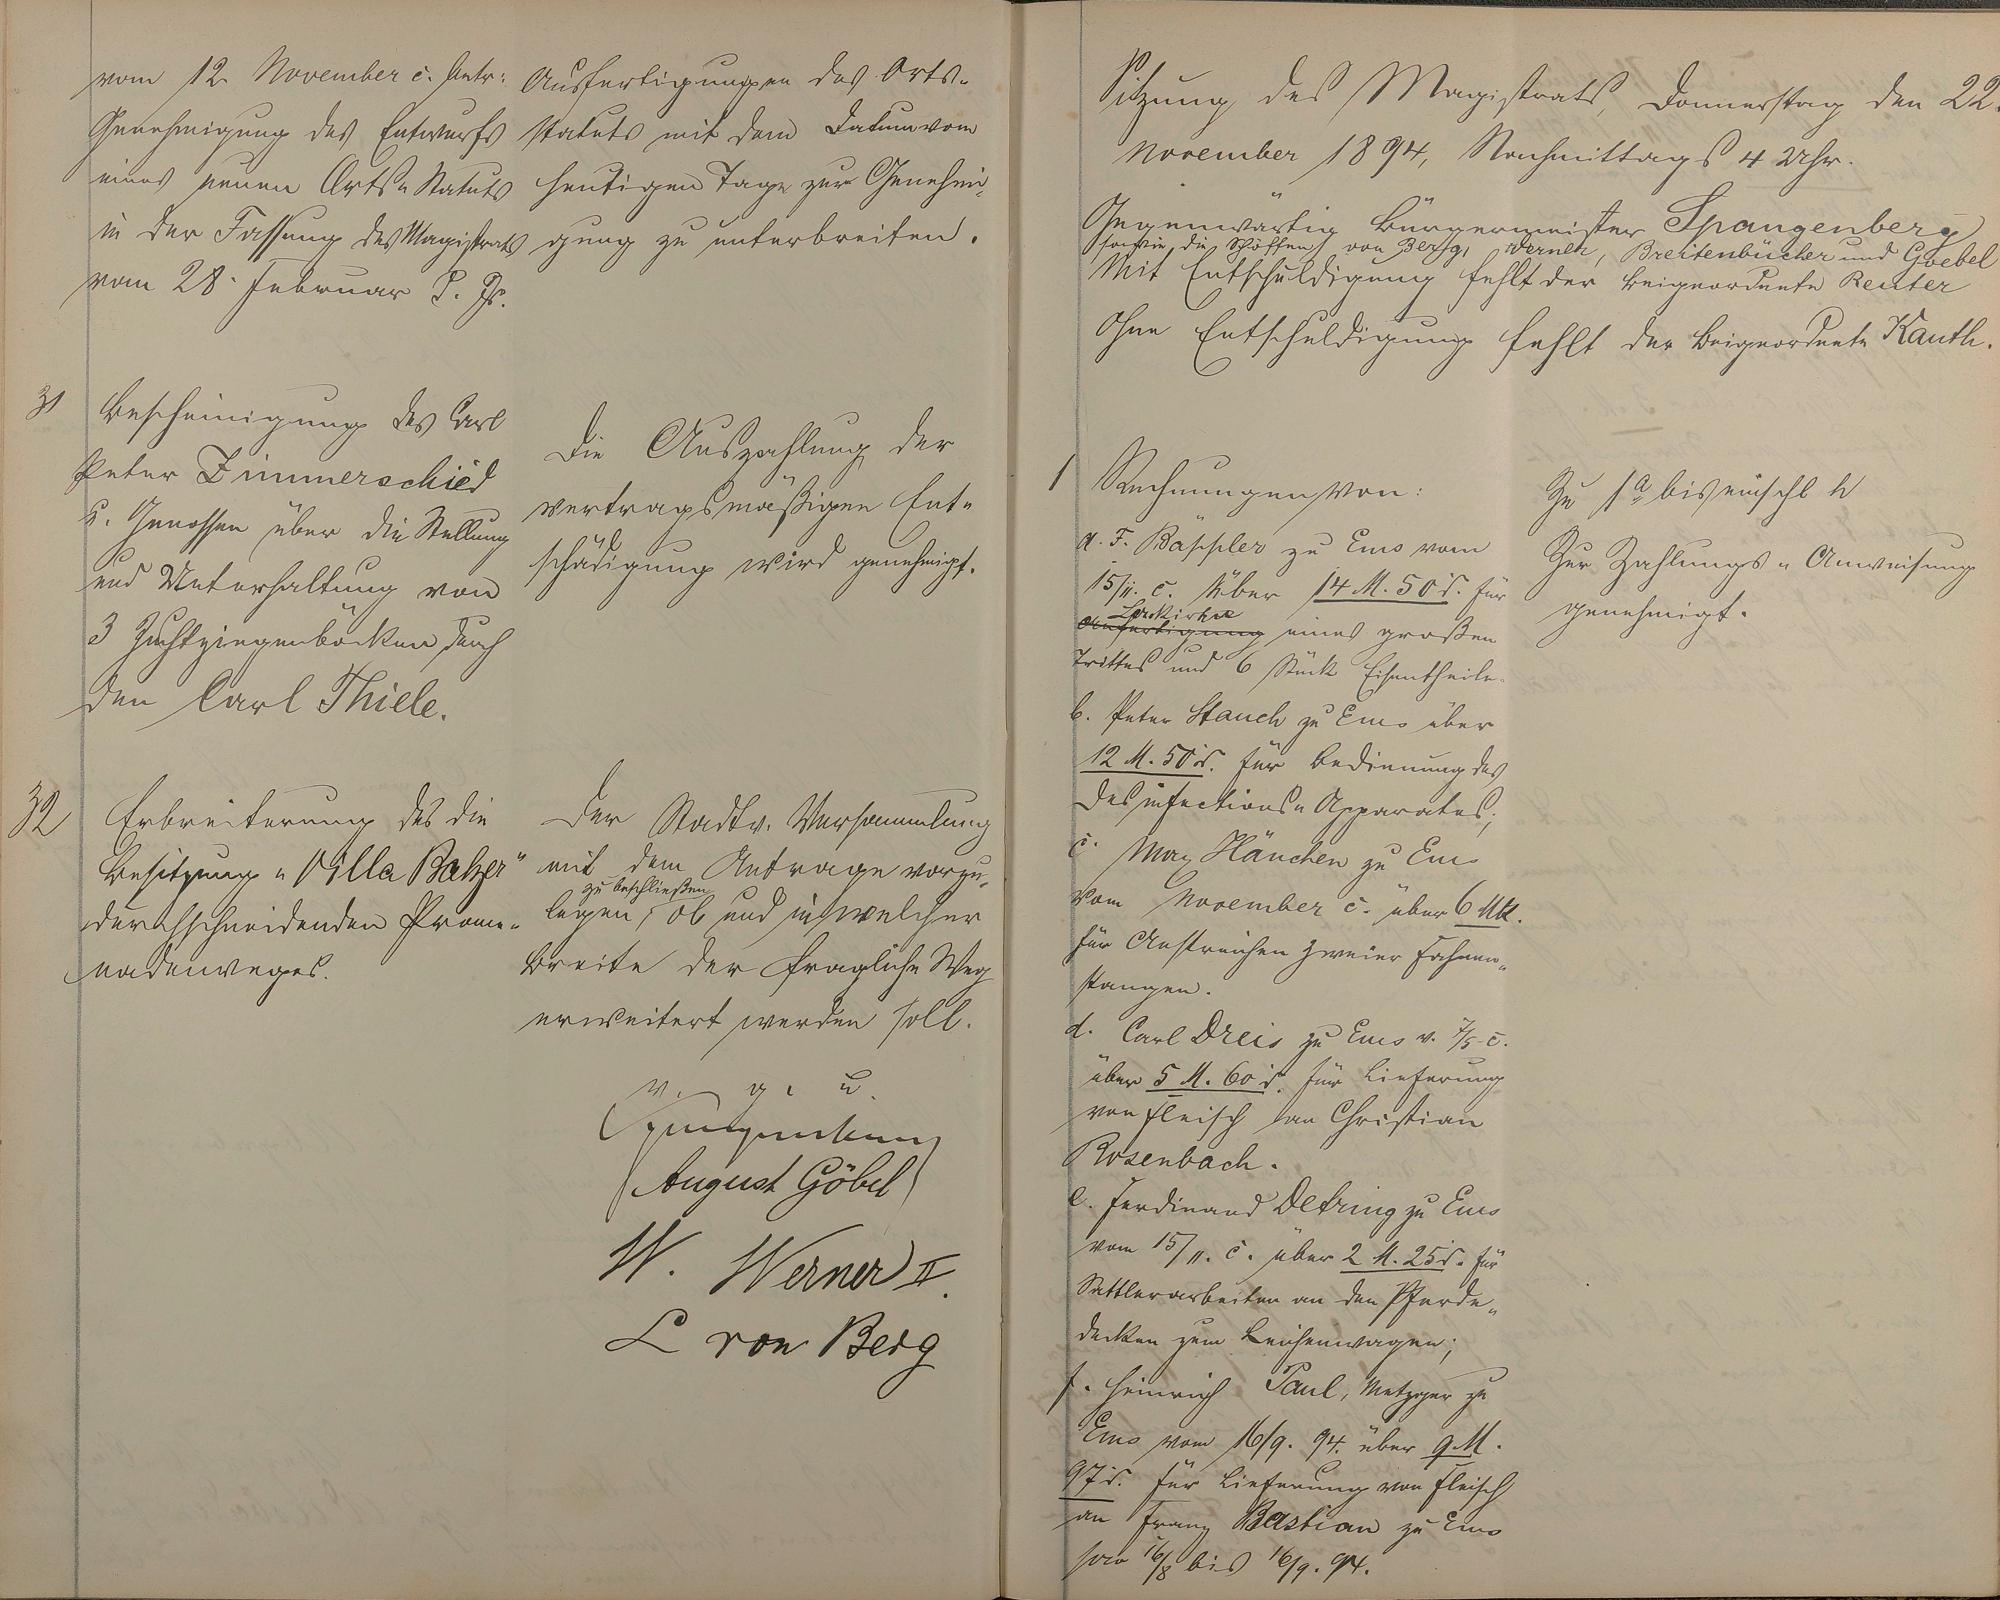 vom 12 November c. betr:
Genehmigung des Entwurfs
eines neuen Orts-Statuts
in der Fassung des Magistrats
vom 28. Februar d. Js.
Ausfertigungen des Orts-
statuts mit dem Datum vom
heutigen Tage zur Genehmi-
gung zu unterbreiten.
31
Bescheinigung des Carl
Peter Zimmerschied
u. Genossen über die Stellung
und Unterhaltung von
3 Zuchtziegenböcken durch
den Carl Thiele.
Die Auszahlung der
vertragsmäßigen Ent-
schädigung wird genehmigt.
32
Erbreiterung des die
Besitzung "Villa Balzer"
durchschneidenden Prome-
nadenweges.
Der Stadtv. Versammlung
mit dem Antrage vorzu-
zu beschließen
legen, ob und in welcher
Breite der fragliche Weg
erweitert werden soll.
v. g. u.
Spangenberg
August Göbel
W. Werner II.
L von Berg
Sitzung des Magistrats, Donnerstag den 22.
November 1894, Nachmittags 4 Uhr.
Gegenwärtig Bürgermeister Spangenberg
sowie die Schöffen von Berg, Werner, Breitenbücher und Goebel
Mit Entschuldigung fehlt der Beigeordnete Reuter
Ohne Entschuldigung fehlt der Beigeordnete Kauth.
1
Rechnungen von:
a. F. Bäppler zu Ems vom
15/11. c. über 14 M. 50 d. für
Lackiren
Anfertigung eines großen
Trittes und 6 Stück Eisentheile.
b. Peter Stauch zu Ems über
12 M. 50 d. für Bedienung des
Desinfections-Apparates;
c. Max Hänchen zu Ems
vom November c. über 6 Mk.
für Anstreichen zweier Fahnen-
stangen.
d. Carl Dreis zu Ems v. 7/5 c.
über 5 M. 60 d. für Lieferung
von Fleisch an Christian
Rosenbach.
e. Ferdinand Detring zu Ems
vom 15/11. c. über 2 M. 25 d. für
Sattlerarbeiten an den Pferde-
decken zum Leichenwagen;
f. Heinrich Paul, Metzger zu
Ems vom 16/9. 94. über 9 M.
97 d. für Lieferung von Fleisch
an Franz Bastian zu Ems
pro 16/8 bis 16/9. 94.
Zu 1 a bis einschl h
Zur Zahlungs-Anweisung
genehmigt.